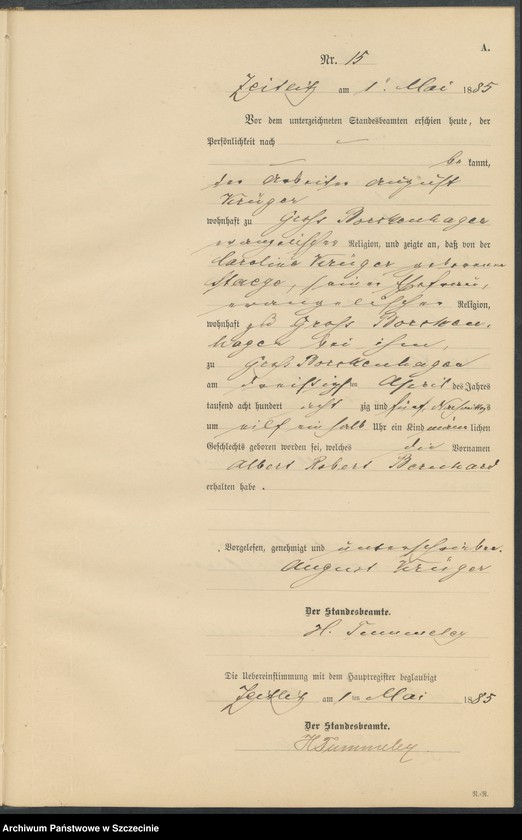 A.
Nr. 15
Zeitlitz am 1ten Mai 1885
Vor dem unterzeichneten Standesbeamten erschien heute, der
Persönlichkeit nach
be kannt,
der Arbeiter August
Krüger
wohnhaft zu Groß Borckenhagen
evangelischer Religion, und zeigte an, daß von der
Caroline Krüger geborenen
Staege, seiner Ehefrau,
evangelischer Religion,
wohnhaft zu Groß Borcken-
hagen bei ihm,
zu Groß Borckenhagen
am dreißigsten April des Jahres
tausend acht hundert acht zig und fünf Nachmittags
um eilf ein halb Uhr ein Kind männlichen
Geschlechts geboren worden sei, welches die Vornamen
Albert Robert Bernhard
erhalten habe.
Vorgelesen, genehmigt und unterschrieben.
August Krüger
Der Standesbeamte.
H.
Die Uebereinstimmung mit dem Hauptregister beglaubigt
Zeitlitz am 1ten Mai 1885
Der Standesbeamte.
H
Archiwum Państwowe w Szczecinie